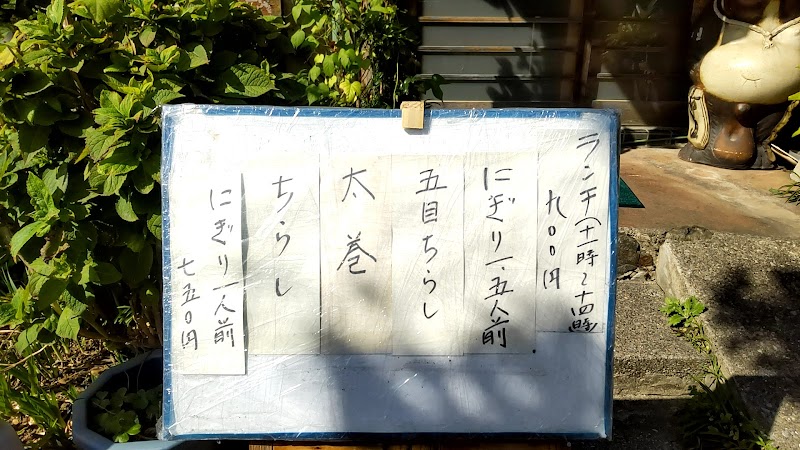 ランチ(十一時~十四時)
九〇〇円
にぎり一.五人前
五目ちらし
太巻
ちらし
にぎり一人前
七五〇円